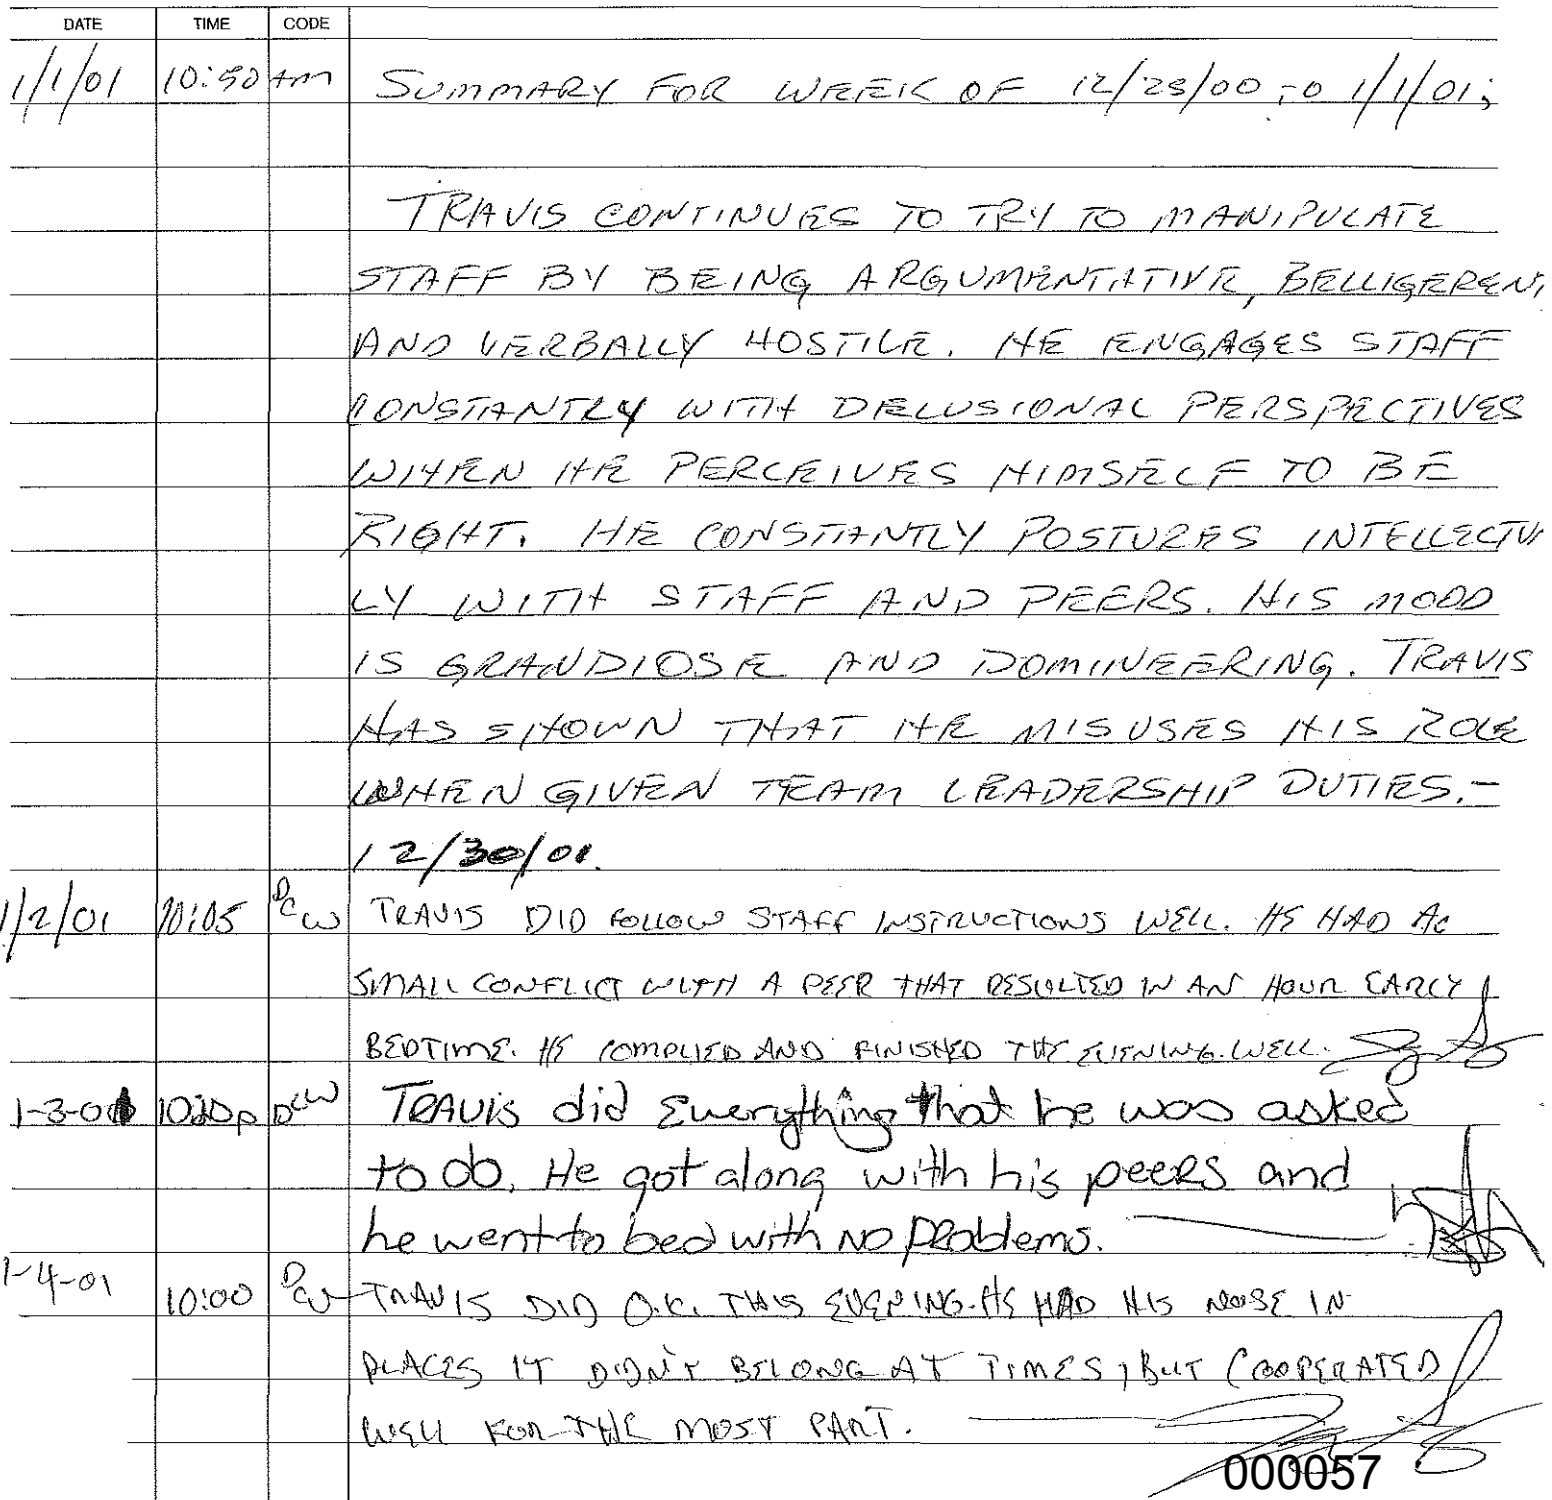 DATE TIME CODE
1/1/01 10:50 Am SUMMARY FOR WEEK OF 12/25/00 TO 1/1/01;
TRAVIS CONTINUES TO TRY TO MANIPULATE
STAFF BY BEING ARGUMENTATIVE, BELLIGEREN
AND VERBALLY HOSTILE. HE ENGAGES STAFF
CONSTANTLY WITH DELUSIONAL PERSPECTIVES
WHEN HE PERCEIVES HIMSELF TO BE
RIGHT. HE CONSTANTLY POSTURES INTELLECTU
LY WITH STAFF AND PEERS. HIS MOOD
IS GRANDIOSE AND DOMINEERING. TRAVIS
HAS SHOWN THAT HE MISUSES HIS ROLE
WHEN GIVEN TEAM LEADERSHIP DUTIES.-
12/30/01.
1/2/01 10:05 DCW TRAVIS DID FOLLOW STAFF INSTRUCTIONS WELL. HE HAD
SMALL CONFLICT WITH A PEER THAT RESULTED IN AN HOUR EARLY
BEDTIME. HE COMPLIED AND FINISHED THE EVENING WELL.
1-3-01 DCW TRAVIS did Everything that he was asked
to do. He got along with his peers and
he went to bed with NO PRoblems.
1-4-01 10:00 DCW TRAVIS DID O.K. THIS EVENING. HE HAD HIS NOSE IN
PLACES IT DIDN'T BELONG AT TIMES, BUT COOPERATED
WELL FOR THE MOST PART.
000057